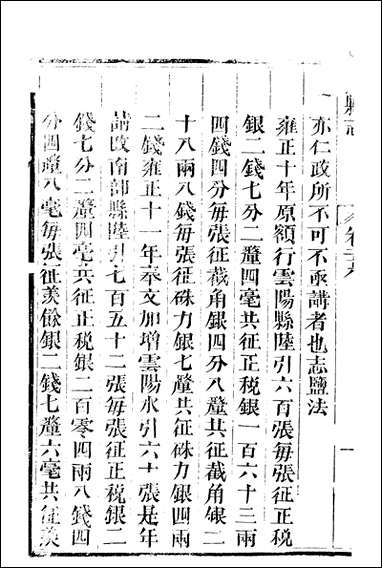 亦仁政所不可不亟講者也志鹽法
雍正十年原額行雲陽縣陸引六百張每張征正稅
銀二錢七分二釐四毫共征正稅銀一百六十三兩
四錢四分每張征截角銀四分八釐共征截角銀二
十八兩八錢每張征硃力銀七釐共征硃力銀四兩
二錢雍正十一年奉文加增雲陽水引六十張是年
請改南部縣陸引七百五十二張每張征正稅銀二
錢七分二釐四毫共征正稅銀二百零四兩八錢四
分四釐八毫每張征羨餘銀二錢七釐六毫共征羨